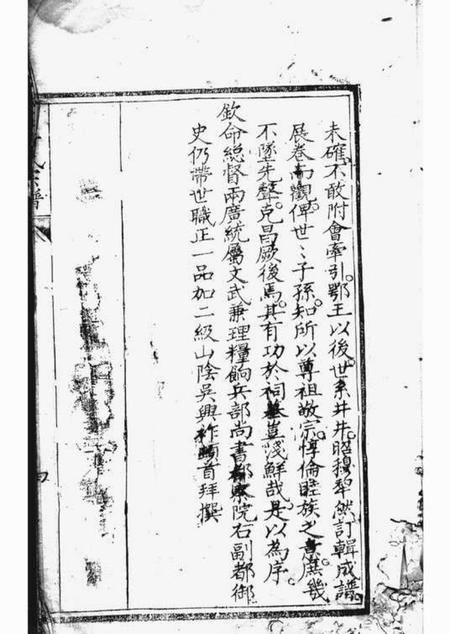 未確不敢附會牽引。鄂王以後。世系井井。昭穆犁然訂輯成譜。
展卷而觀。俾世〻子孫知所以尊祖敬宗。惇倫睦族之意。庶幾
不墜先聲。克昌厥後焉。其有功於祠墓豈淺鮮哉。是以為序。
欽命總督兩廣統屬文武兼理糧餉兵部尚書都察院右副都御
史仍帶世職正一品加二級山陰吳興祚頓首拜撰
氏宗譜